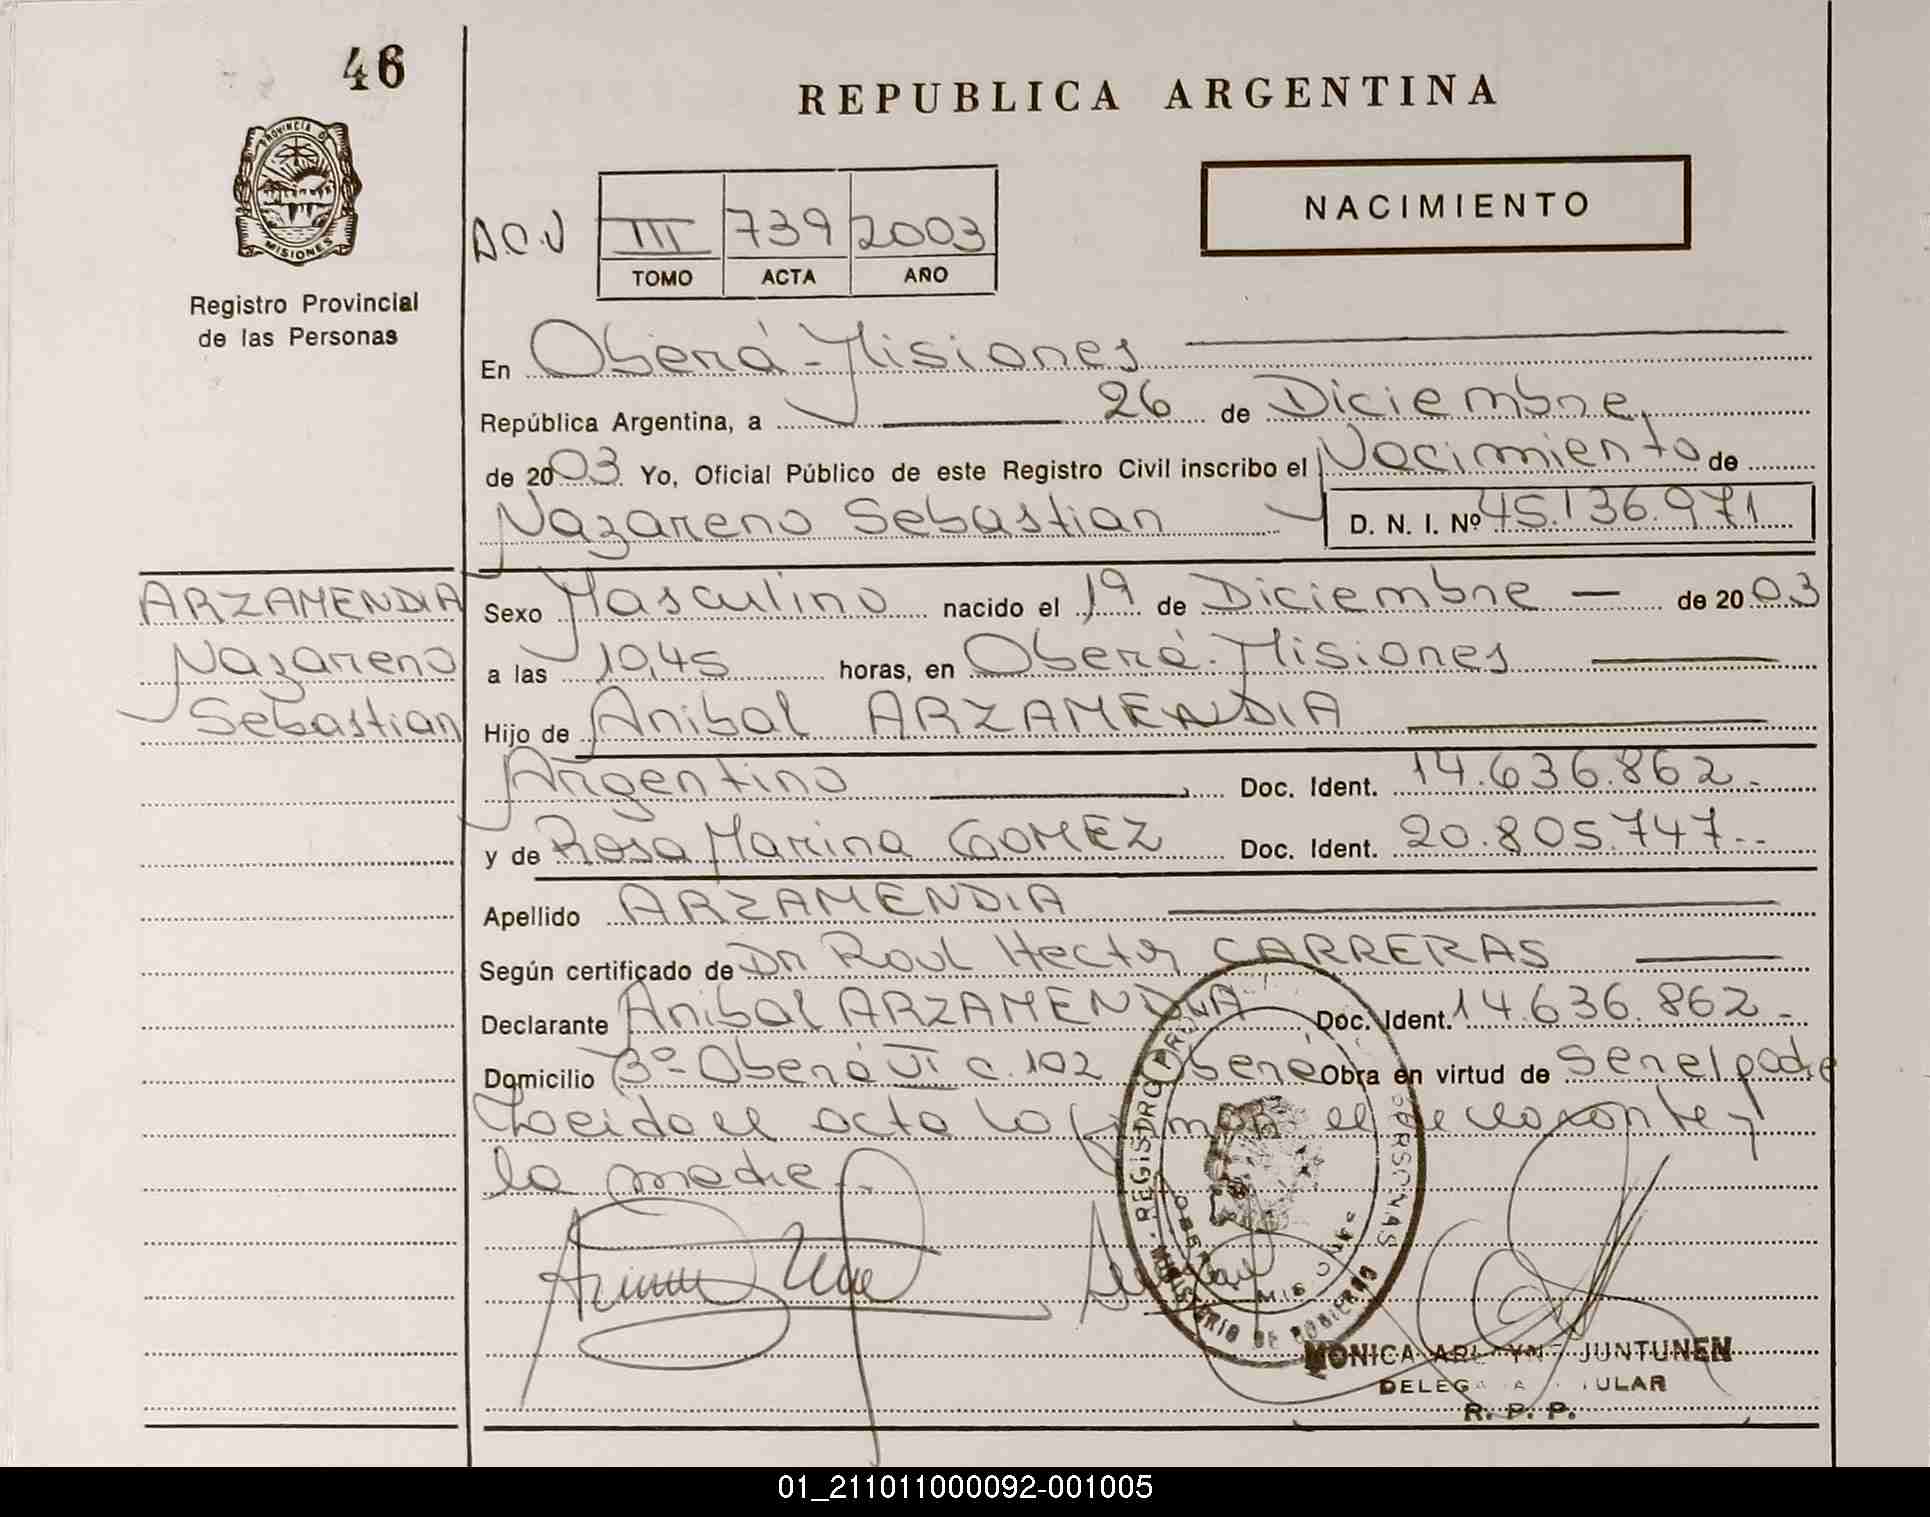 46
REPUBLICA ARGENTINA
PROVINCIA DE
MISIONES
NACIMIENTO
D.C.V III 739 2003
TOMO ACTA AÑO
Registro Provincial
de las Personas
En Oberá - Misiones
República Argentina, a 26 de Diciembre
de 2003 Yo, Oficial Público de este Registro Civil inscribo el Nacimiento de
Nazareno Sebastian D. N. I. Nº 45.136.971
ARZAMENDIA
Nazareno
Sebastian
Sexo Masculino nacido el 19 de Diciembre — de 2003
a las 10,45 horas, en Oberá - Misiones
Hijo de Anibal ARZAMENDIA
Argentino Doc. Ident. 14.636.862.-
y de Rosa Marina GOMEZ Doc. Ident. 20.805.747.--
Apellido ARZAMENDIA
Según certificado de Dr Raul Hector CARRERAS
Declarante Anibal ARZAMENDIA Doc. Ident. 14.636.862.-
Domicilio Bº Oberá VI c. 102 Oberá Obra en virtud de Ser el padre
Leida el acta la firman el declarante y
la madre.-
REGISTRO PERSONAS
OBERA MISIONES
MINISTERIO DE GOBIERNO
MONICA JUNTUNEN
DELEGADA TITULAR
R. P. P.
01_211011000092-001005